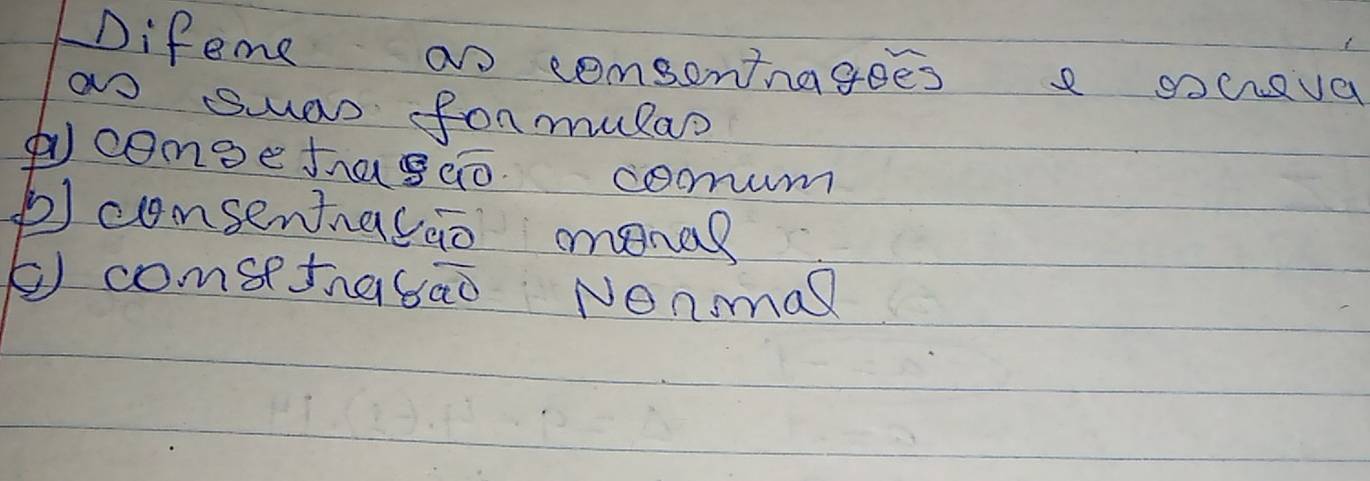 Difene as consentragões e escreva
as suas formulas
a) consetração comum
b) consentração moral
c) consetração Normal